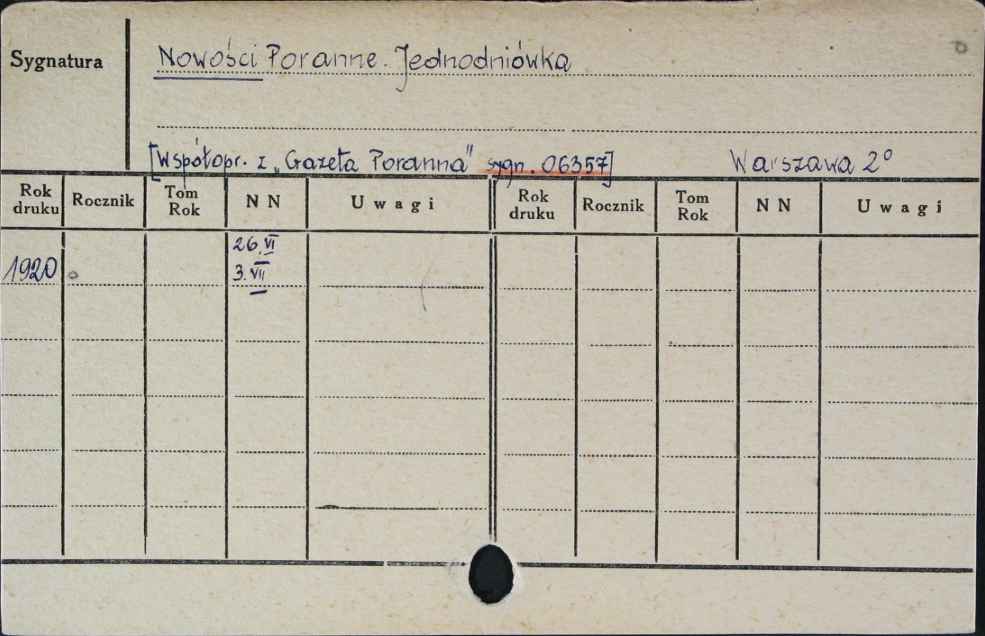 Sygnatura
Nowości Poranne. Jednodniówka
[Współopr. z „Gazeta Poranna" sygn. 06357]
Warszawa 2°
Rok druku Rocznik Tom Rok N N Uwagi Rok druku Rocznik Tom Rok N N Uwagi
26.VI
1920 3.VII